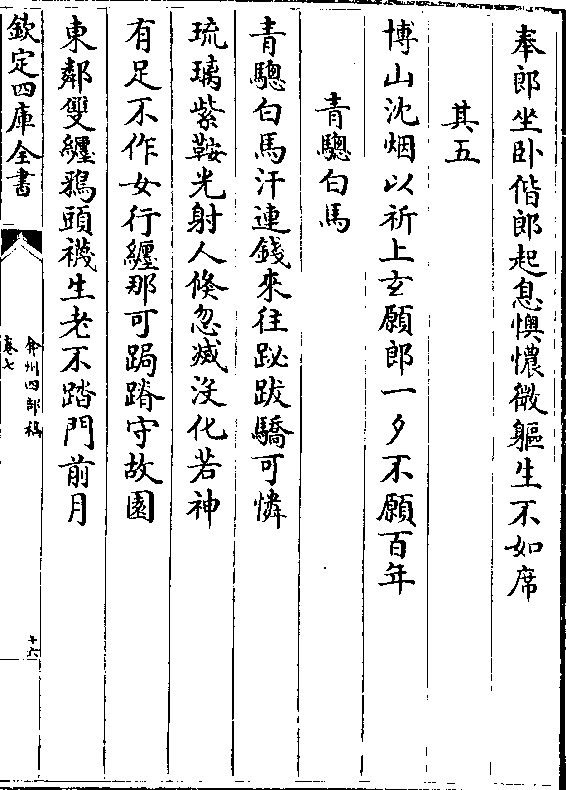 奉郎坐卧偕郎起息懊憹微軀生不如席
其五
博山沈烟以祈上玄願郎一夕不願百年
青驄白馬
青驄白馬汗連錢來往跐跋驕可憐
琉璃紫鞍光射人倏忽滅没化若神
有足不作女行纏那可跼蹐守故園
東鄰雙纏鴉頭襪生老不踏門前月
欽定四庫全書
弇州四部稿
卷七
十六